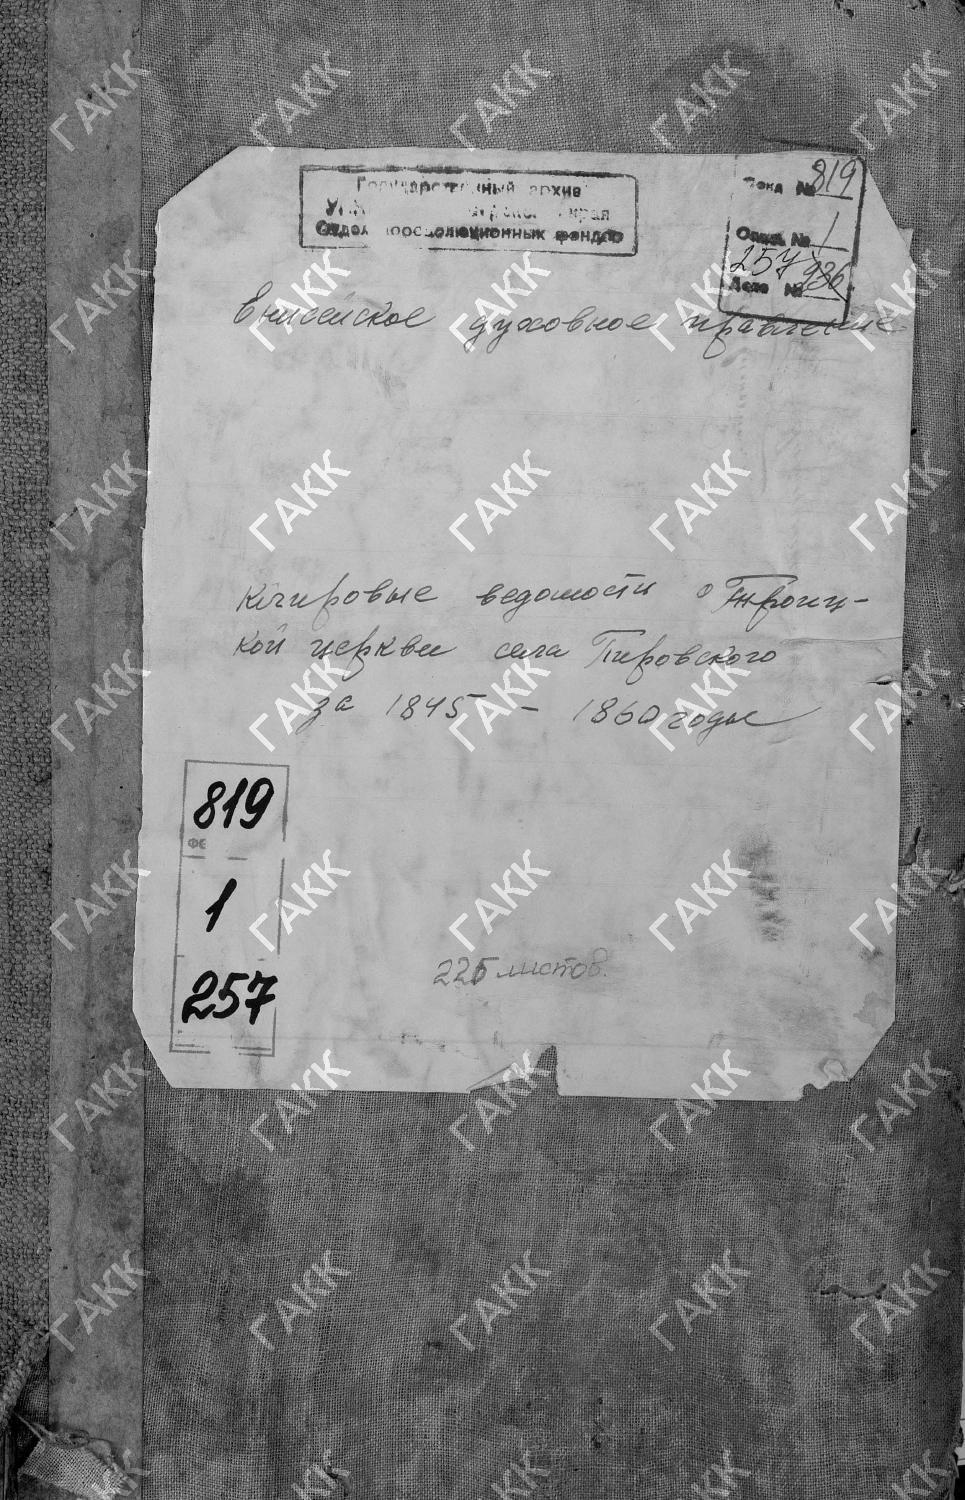 Государственный архив
края
Отдел дореволюционных фондов
Фонд № 819
Опись № 1
257 936
Дело №
Енисейское духовное правление
Клировые ведомости о Троиц-
кой церкви села Пировского
за 1845 - 1860 годы
819
ФЕ
1
257
225 листов.
ГАКК